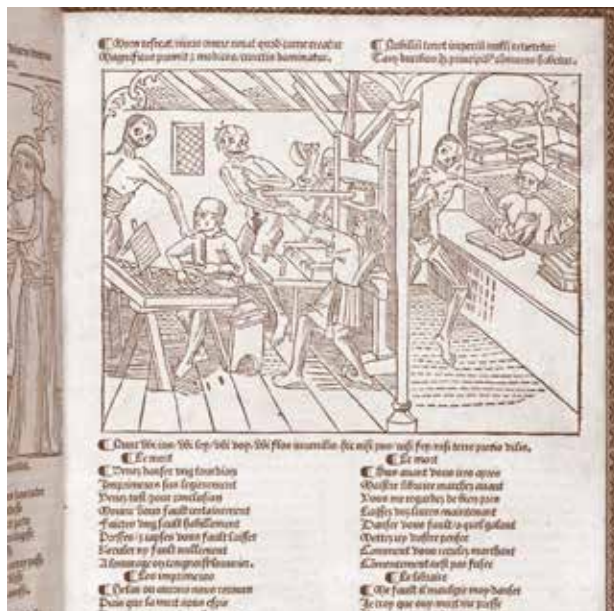 ¶ Mors resecat, mors omne necat quod carne creatur
Magnificos premit & modicos, cunctis dominatur.
¶ Nobilium tenet imperium nulli reueretur
Tam ducibus q̃ principibus communis habetur.
¶ Nunc vbi ius, vbi lex, vbi vox, vbi flos iuuenilis. Hic nisi pus, nisi fex, nisi terre vilis.
¶ Le mort
¶ Venez danser vng tourdion
Imprimeurs sus legierement
Venez tost pour conclusion
Mourir vous fault certainement
Faictes vng sault habillement
Presses & capses vous fault laisser
Reculer ny fault nullement
A louurage on congnoist louurier.
¶ Les imprimeurs
¶ Helas ou aurons nous recours
Puis que la mort nous espie
¶ Le mort
¶ Sus auant vous ires apres
Maistre libraire marchez auant
Vous me regardez de bien pres
Laissez voz liures maintenant
Danser vous fault a quel galant
Mettez icy vostre penser
Comment vous reculez marchant
Commencement nest pas fusee
¶ Le libraire
¶ Me fault il maulgre moy danser
Je croy que ouy mort me presse